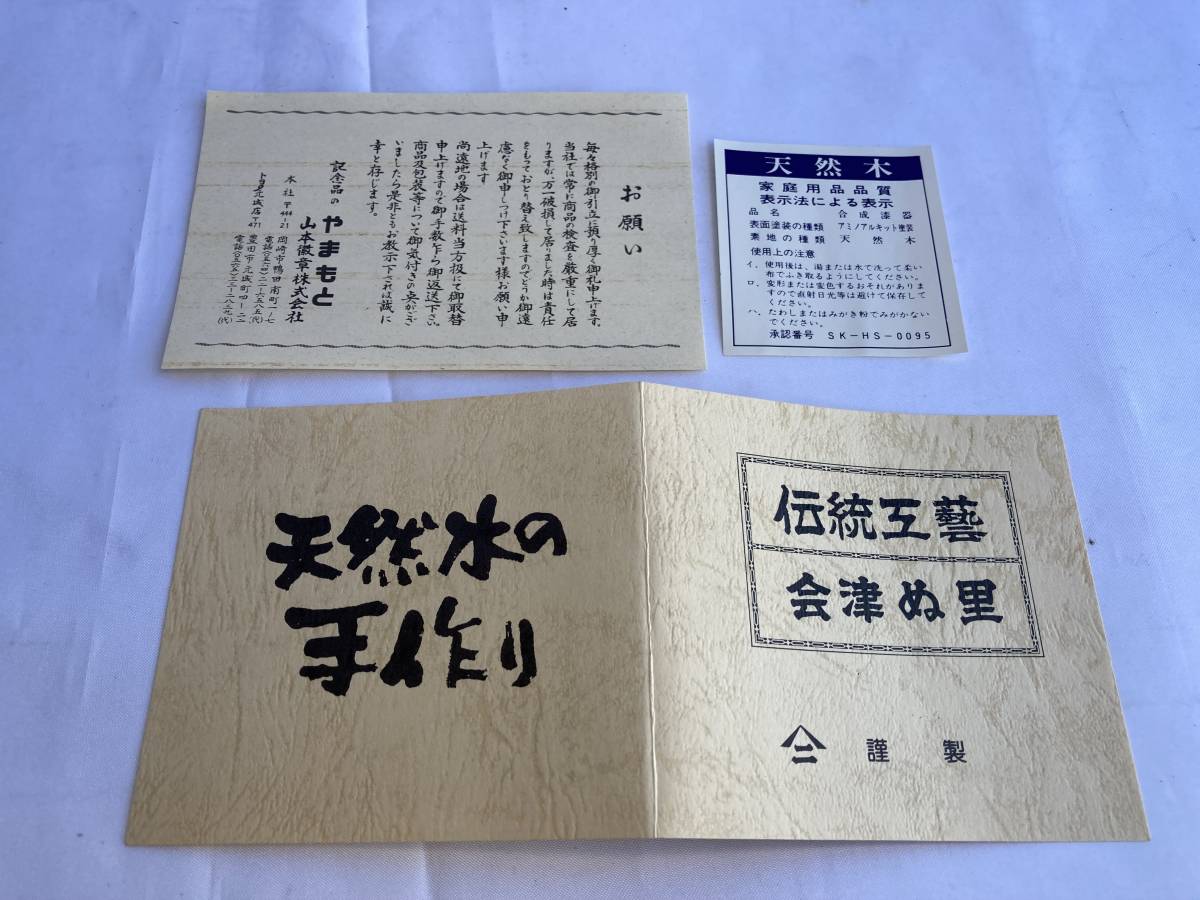 お願い
毎々格別の御引立に預り厚く御礼申上げます。
当社では常に商品の検査を厳重にして居
りますが、万一破損して居りました時は責任
をもっておとり替え致しますのでどうか御遠
慮なく御申しつけ下さいます様お願い申
上げます
尚遠地の場合は送料当方扱にて御取替
申上げますので御手数乍ら御返送下さい。
商品及包装等について御気付きの点がござ
いましたら是非ともお教示下されば誠に
幸と存じます。
記念品の やまもと
山本徽章株式会社
本社 〒444-21 岡崎市鴨田南町一-七
電話(〇五六四)二二-六五八五(代)
トヨタ元城店 〒471 豊田市元城町四-二二
電話(〇五六五)三二-二八三九(代)
天然木
家庭用品品質
表示法による表示
品名 合成漆器
表面塗装の種類 アミノアルキット塗装
素地の種類 天然木
使用上の注意
イ. 使用後は、湯または水で洗って柔い
布でふき取るようにしてください。
ロ. 変形または変色するおそれがありま
すので直射日光等は避けて保存して
ください。
ハ. たわしまたはみがき粉でみがかない
でください。
承認番号 SK-HS-0095
天然木の
手作り
伝統工藝
会津ぬ里
謹製